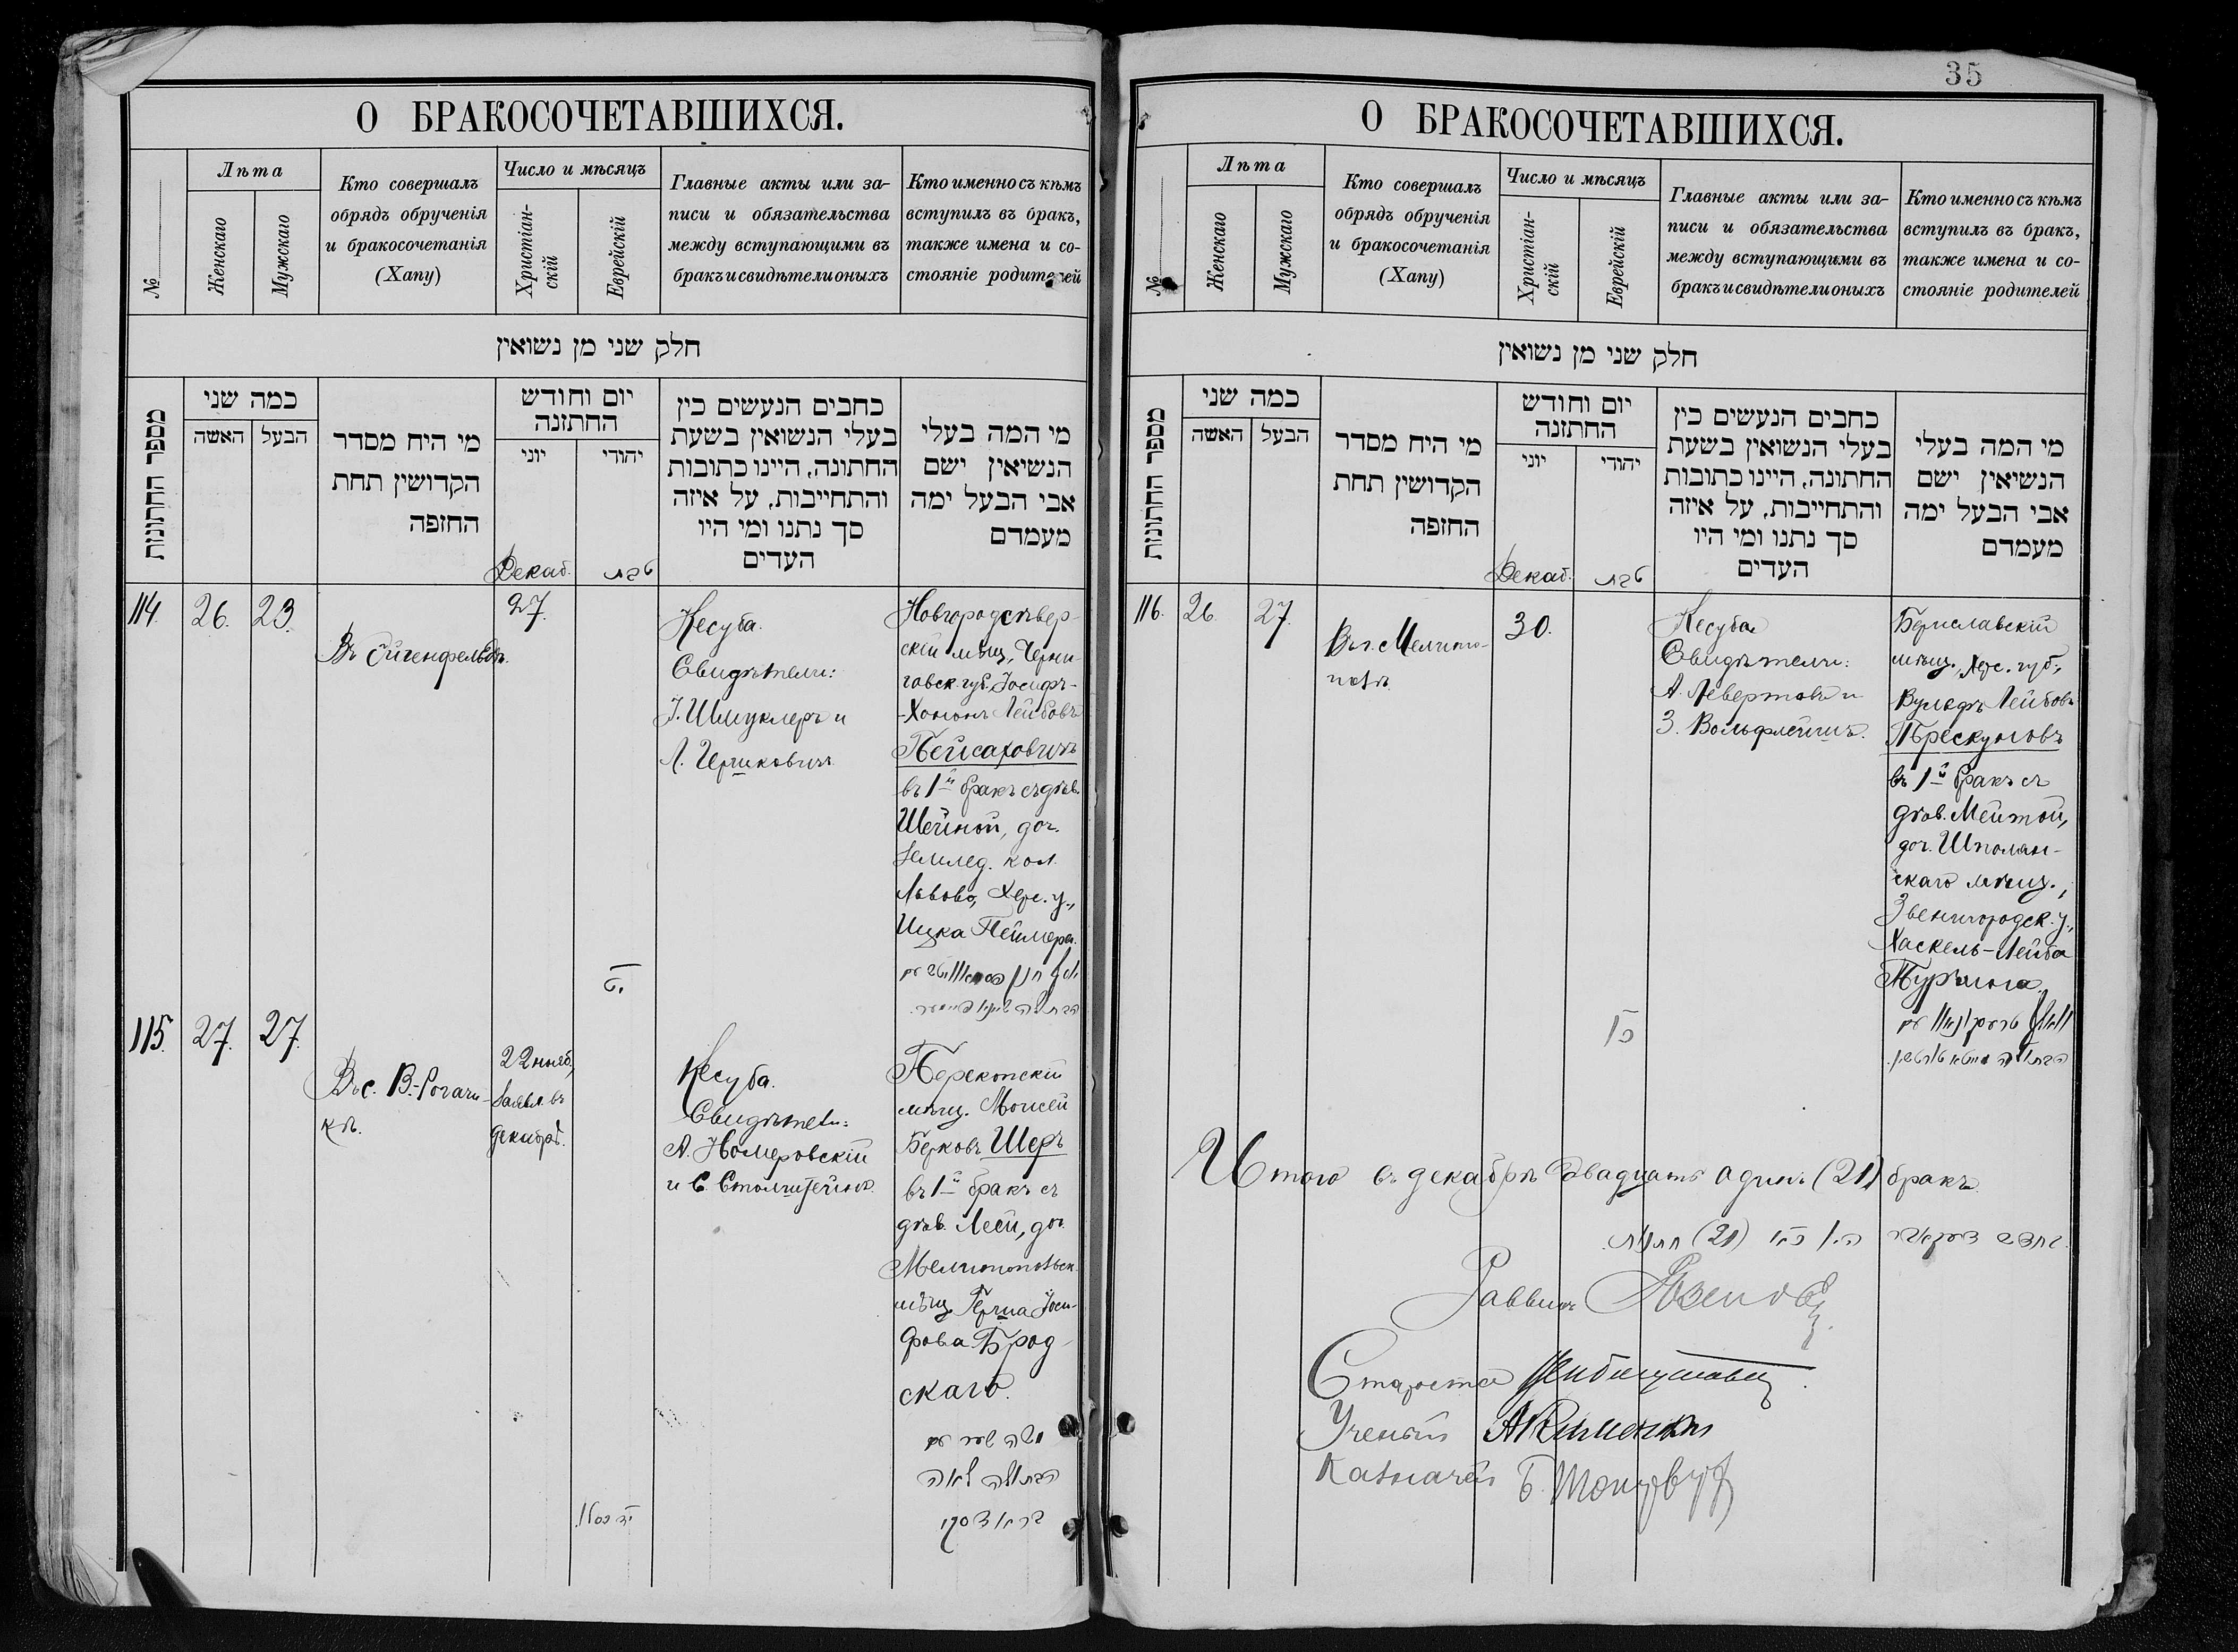 О БРАКОСОЧЕТАВШИХСЯ.
№
Лѣта
Женскаго
Мужскаго
Кто совершалъ
обрядъ обрученія
и бракосочетанія
(Хапу)
Число и мѣсяцъ
Христіан-
скій
Еврейскій
Главные акты или за-
писи и обязательства
между вступающими въ
бракъ и свидѣтели оныхъ
Кто именно съ кѣмъ
вступилъ въ бракъ,
также имена и со-
стояніе родителей
חלק שני מן נשואין
מספר החתונות
כמה שני
האשה
הבעל
מי היח מסדר
הקדושין תחת
החזפה
יום וחודש
החתזנה
יוני
יהודי
כחבים הנעשים כין
בעלי הנשואין בשעת
החתונה, היינו כתובות
והתחייבות, על איזה
סך נתנו ומי היו
העדים
מי המה בעלי
הנשיאין ישם
אבי הבעל ימה
מעמדם
Декаб.
טבת
114.
26.
23.
Въ Эйгенфельдѣ.
27.
Кесуба.
Свидѣтели:
І. Шмуклеръ и
Л. Гершковичъ
Новгородсѣвер-
скій мѣщ., Черни-
говск. губ. Іосифъ-
-Хононъ Лейбовъ
Пейсаховичъ
въ 1й бракъ съ дѣв.
Шейной, доч.
землед. кол.
Львово, Херс. у.,
Ицка Пеймера.
115.
27.
27.
Въ с. В.-Рогачи-
кѣ.
22 нояб.,
заявл. въ
декабрѣ.
Кесуба.
Свидѣтели:
А. Номеровскій
и С. Столштейнъ.
Перекопскій
мѣщ. Моисей
Берковъ Шеръ
въ 1й бракъ съ
дѣв. Леей, доч.
Мелитопольск.
мѣщ. Герша Іоси-
фова Брод-
скаго.
משה שער עם
הבתולה לאה
בראדסקי
יד כסלו
35
О БРАКОСОЧЕТАВШИХСЯ.
№
Лѣта
Женскаго
Мужскаго
Кто совершалъ
обрядъ обрученія
и бракосочетанія
(Хапу)
Число и мѣсяцъ
Христіан-
скій
Еврейскій
Главные акты или за-
писи и обязательства
между вступающими въ
бракъ и свидѣтели оныхъ
Кто именно съ кѣмъ
вступилъ въ бракъ,
также имена и со-
стояніе родителей
חלק שני מן נשואין
מספר החתונות
כמה שני
האשה
הבעל
מי היח מסדר
הקדושין תחת
החזפה
יום וחודש
החתזנה
יוני
יהודי
כחבים הנעשים כין
בעלי הנשואין בשעת
החתונה, היינו כתובות
והתחייבות, על איזה
סך נתנו ומי היו
העדים
מי המה בעלי
הנשיאין ישם
אבי הבעל ימה
מעמדם
Декаб.
טבת
116.
26.
27.
Въ г. Мелито-
полѣ
30.
Кесуба
Свидѣтели:
А. Левертовъ и
З. Вольфлейшъ.
Бериславскій
мѣщ., Херс. губ.,
Вульфъ Лейбовъ
Пѣрескуновъ
въ 1й бракъ съ
дѣв. Мейтой,
доч. Шполян-
скаго мѣщ.,
Звенигородск. у.,
Хаскель-Лейба
Итого въ декабрѣ двадцать одинъ (21) бракъ
(21)
Раввинъ
Староста
Ученый
Казначей